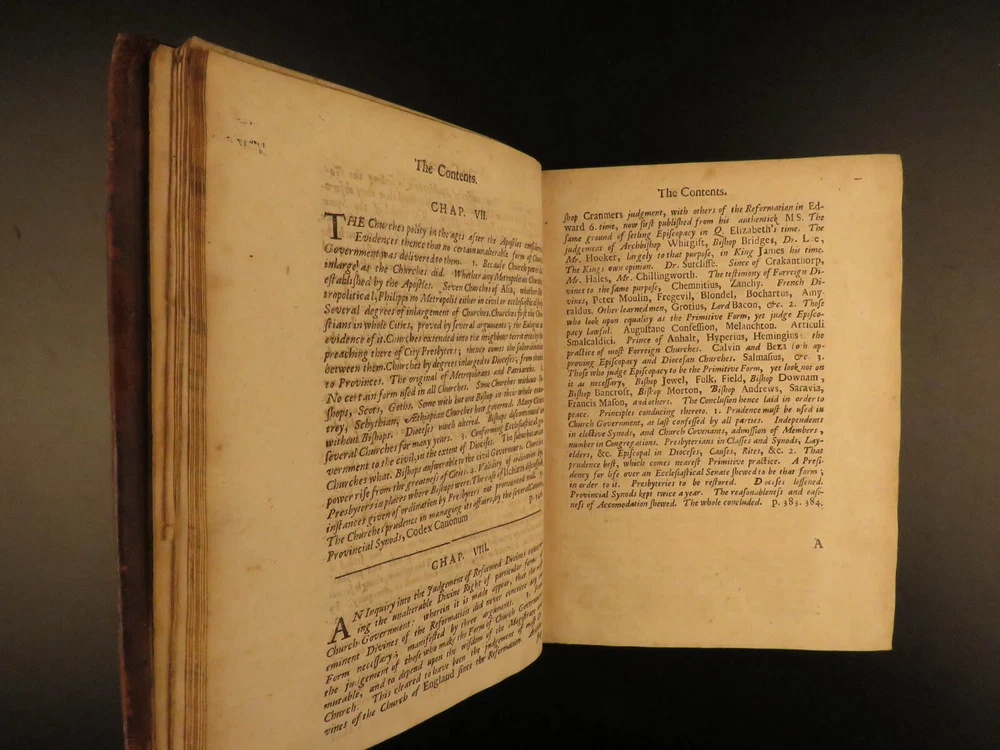 The Contents.
CHAP. VII.
THE Churches polity in the ages after the Apostles considered:
Evidences thence that no certain unalterable form of Church-
Government was delivered to them. 1. Because Church power did
inlarge as the Churches did. Whether any Metropolitan Churches
established by the Apostles. Seven Churches of Asia, whether Me-
tropolitical, Philippi no Metropolis either in civil or ecclesiastical
Several degrees of inlargement of Churches. Churches first the Chri-
stians in whole Cities, proved by several arguments; the Eulogiæ an
evidence of it. Churches extended into the neighbour territories by the
preaching there of City Presbyters; thence comes the subordination
between them. Churches by degrees inlarged to Dioceses; from thence
to Provinces. The original of Metropolitans and Patriarchs. 2.
No certain form used in all Churches. Some Churches without Bi-
shops, Scots, Goths. Some with but one Bishop in their whole coun-
trey, Schythian, Æthiopian Churches how governed. Many Cities
without Bishops. Dioceses much altered. Bishops discontinued in
several Churches for many years. 3. Conforming Ecclesiastical go-
vernment to the civil, in the extent of Dioceses. The suburbicarian
Churches what. Bishops answerable to the civil Governours. Churches
power rise from the greatness of Cities. 4. Validity of ordination by
Presbyters in places where Bishops were. The case of Ischiras discussed;
instances given of ordination by Presbyters not pronounced null. 5.
The Churches prudence in managing its affairs, by the several Canons,
Provincial Synods, Codex Canonum p. 346
CHAP. VIII.
AN Inquiry into the Judgement of Reformed Divines concern-
ing the unalterable Divine Right of particular forms of
Church-Government: wherein it is made appear, that the most
eminent Divines of the Reformation did never conceive any one
Form necessary; manifested by three arguments. 1. From
the judgement of those who make the Form of Church-Government
mutable, and to depend upon the wisdom of the Magistrate and
Church. This cleared to have been the judgement of most Di-
vines of the Church of England since the Reformation.
The Contents.
shop Cranmers judgment, with others of the Reformation in Ed-
ward 6. time, now first published from his authentick MS. The
same ground of setling Episcopacy in Q. Elizabeth's time. The
judgement of Archbishop Whitgift, Bishop Bridges, Dr. Loe,
Mr. Hooker, largely to that purpose, in King James his time.
The Kings own opinion. Dr. Sutcliffe. Since of Crakanthorp,
Mr. Hales, Mr. Chillingworth. The testimony of Forreign Di-
vines to the same purpose, Chemnitius, Zanchy. French Di-
vines, Peter Moulin, Fregevil, Blondel, Bochartus, Amy-
raldus. Other learned men, Grotius, Lord Bacon, &c. 2. Those
who look upon equality as the Primitive Form, yet judge Episco-
pacy lawful. Augustane Confession, Melanchton. Articuli
Smalcaldici. Prince of Anhalt, Hyperius, Hemingius: the
practice of most Forreign Churches. Calvin and Beza both ap-
proving Episcopacy and Diocesan Churches. Salmasius, &c. 3.
Those who judge Episcopacy to be the Primitive Form, yet look not on
it as necessary, Bishop Jewel, Fulk, Field, Bishop Downam,
Bishop Bancroft, Bishop Morton, Bishop Andrews, Saravia,
Francis Mason, and others. The Conclusion hence laid in order to
peace. Principles conducing thereto. 1. Prudence must be used in
Church Government, at last confessed by all parties. Independents
in elective Synods, and Church Covenants, admission of Members,
number in Congregations. Presbyterians in Classes and Synods, Lay-
elders, &c. Episcopal in Dioceses, Causes, Rites, &c. 2. That
prudence best, which comes nearest Primitive practice. A Presi-
dency for life over an Ecclesiastical Senate shewed to be that form;
in order to it. Presbyteries to be restored. Dioceses lessened.
Provincial Synods kept twice a year. The reasonableness and easi-
ness of Accomodation shewed. The whole concluded. p. 383. 384.
A